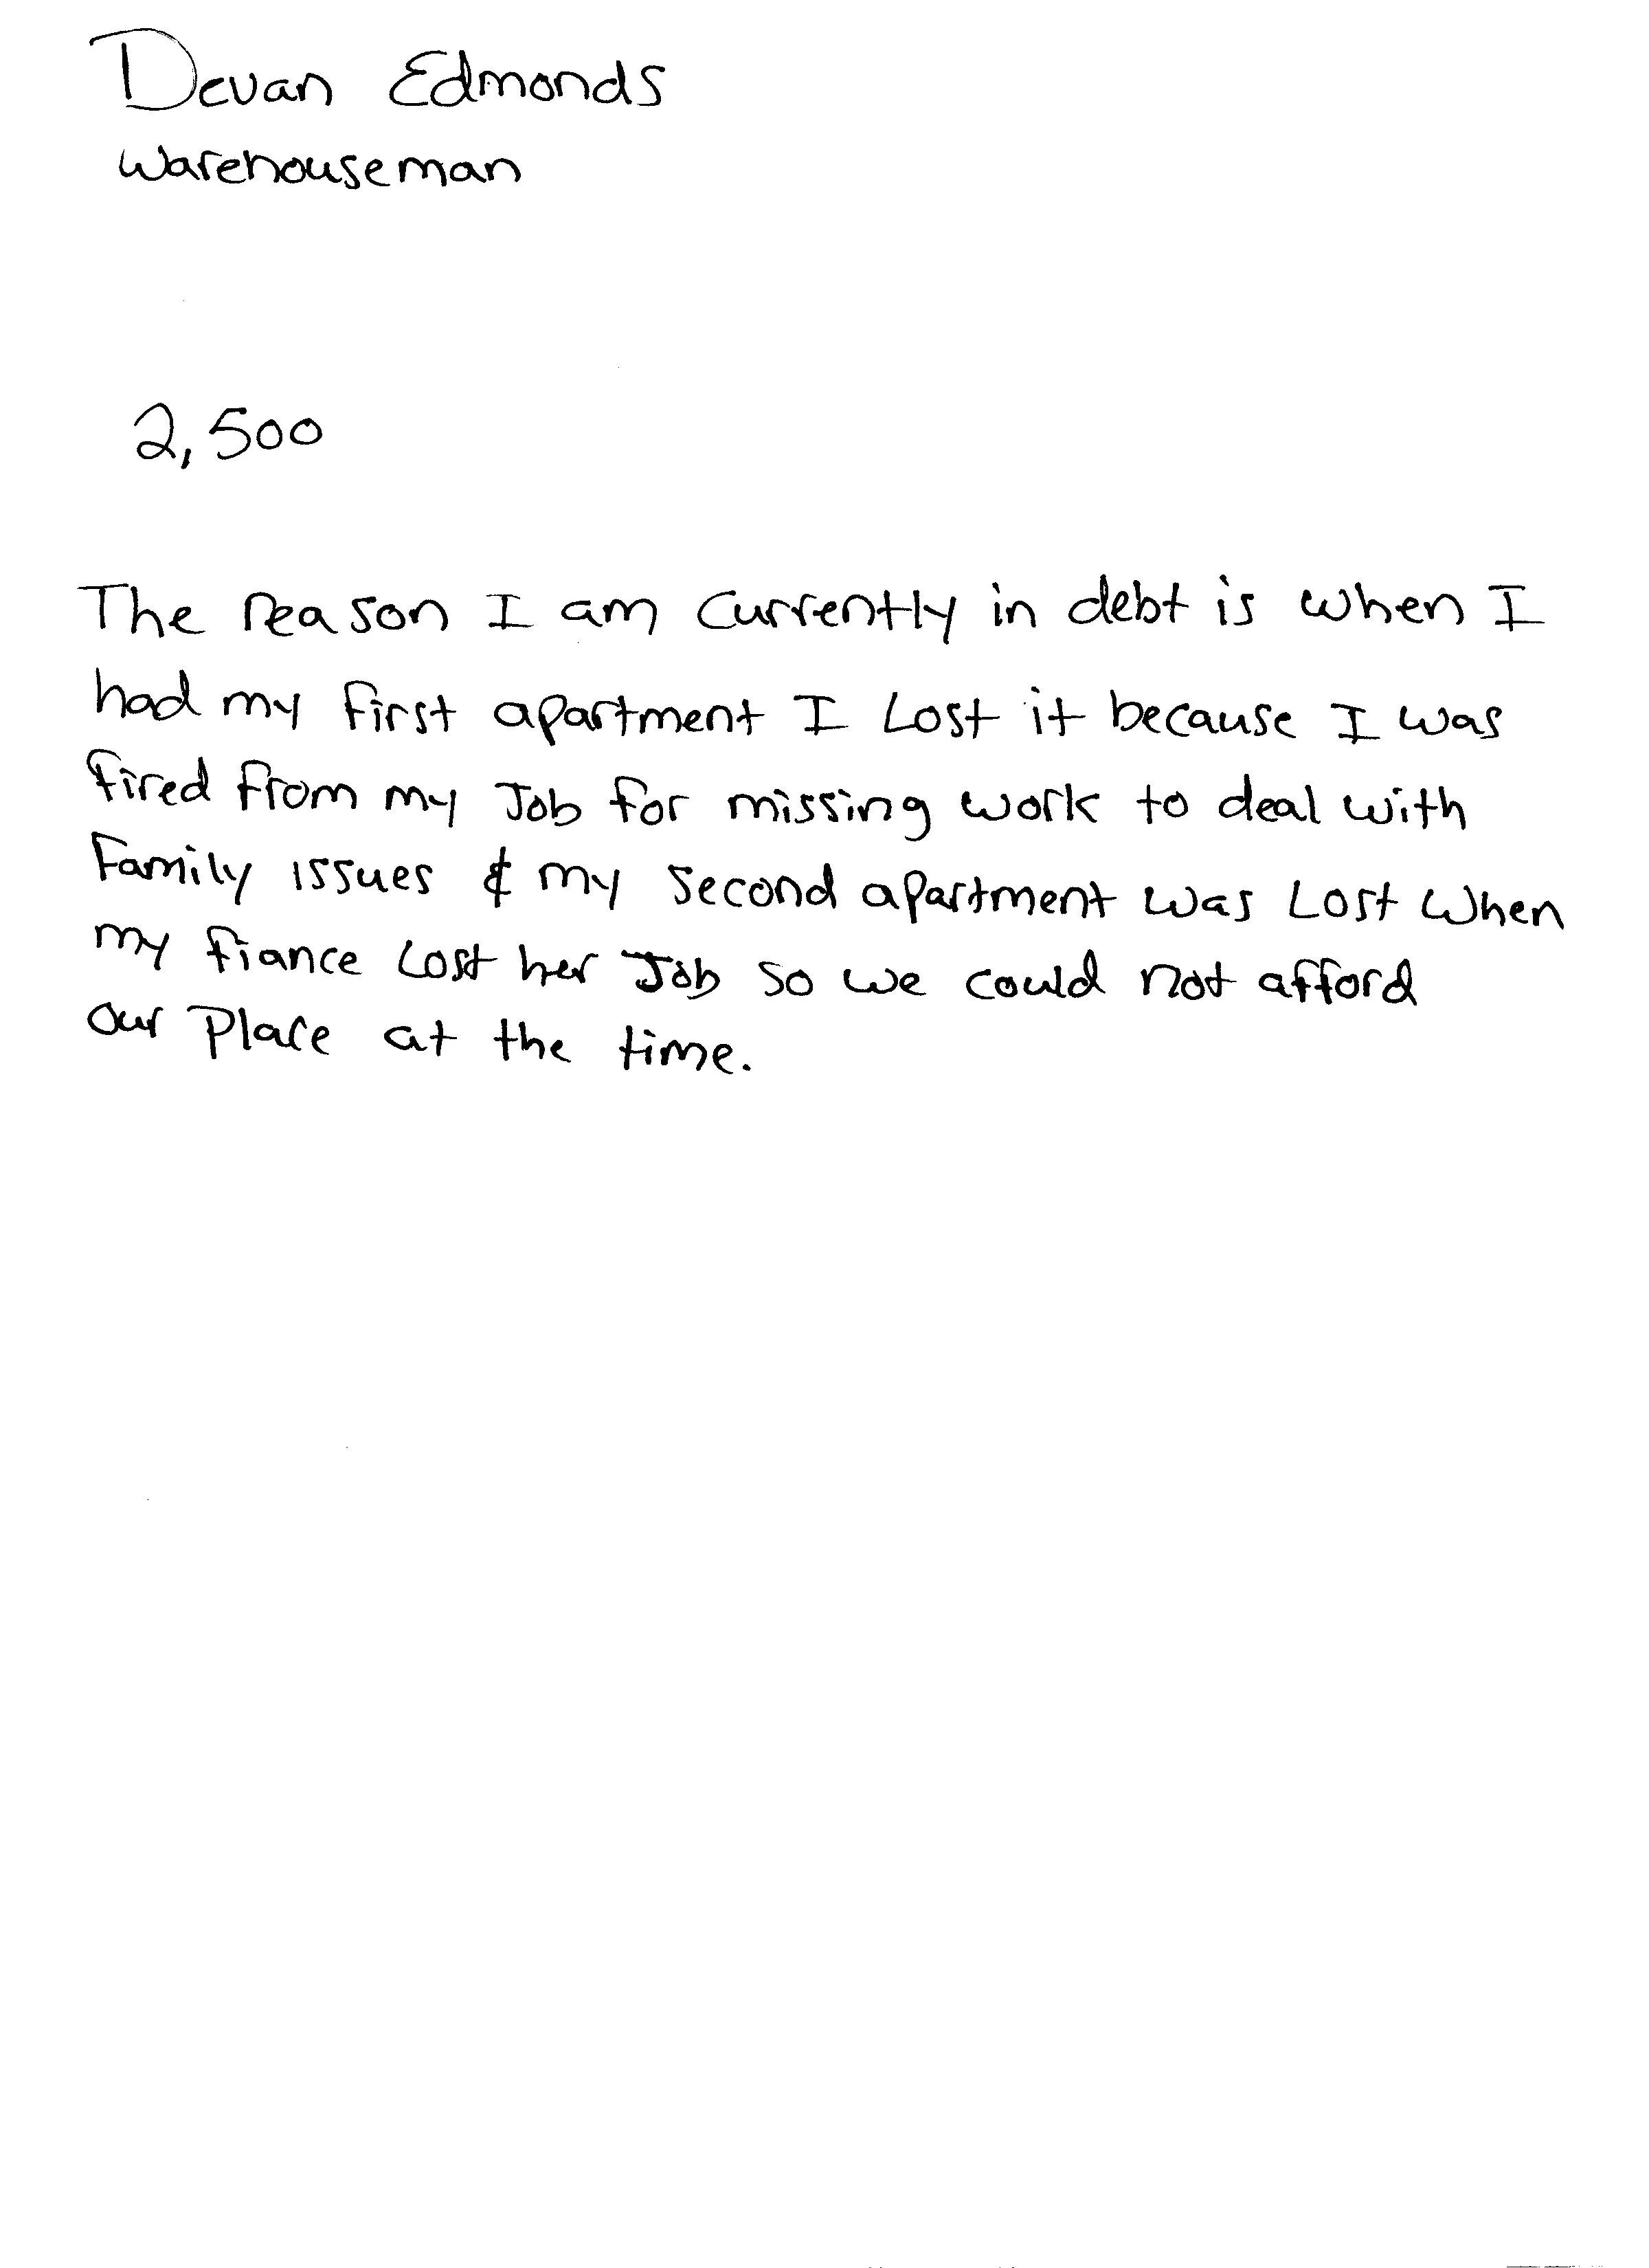 Devan Edmonds
Warehouseman
2,500
The reason I am currently in debt is when I
had my first apartment I Lost it because I was
fired from my Job for missing work to deal with
Family issues & my second apartment was Lost when
my fiance Lost her Job so we could not afford
our Place at the time.